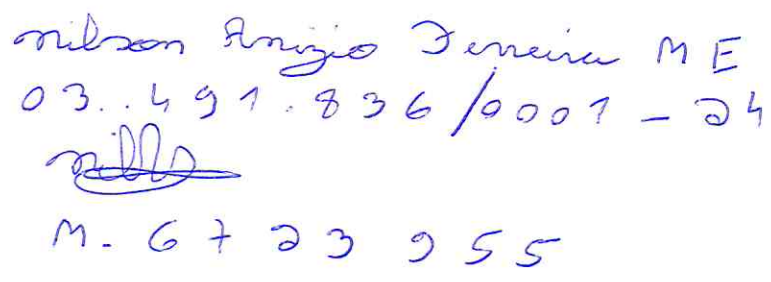 Nilson Anizio Ferreira ME
03..491.836/0001-24
M-6723955